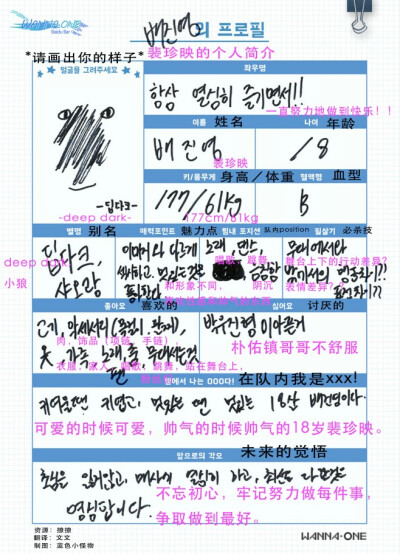 WANNA·ONE
배진영의 프로필
*请画出你的样子*
裴珍映的个人简介
★ ★ 얼굴을 그려주세요 ★ ★
좌우명
항상 열심히 즐기면서!!
一直努力地做到快乐！！
이름 姓名
나이 年龄
배진영
18
裴珍映
키/몸무게 身高/体重
혈액형 血型
-딥다크-
-deep dark-
177/61kg
B
177cm/61kg
별명 别名
매력포인트 魅力点
팀내 포지션 队内position
필살기 必杀技
deep dark
딥다크,
小狼
이미지와 다르게
노래, 댄스,
무대에서와
唱歌，跳舞
舞台上下的行动差异？
和形象不同，
阴沉
表情差异？
좋아요 喜欢的
싫어요 讨厌的
고기, 악세서리
박우진형 이 아픈거
肉，饰品（项链，手链），
朴佑镇哥哥不舒服
옷, 가족, 노래, 춤, 무대서는것
팬
衣服，家人，唱歌，跳舞，站在舞台上，
팀에서 나는 OOO다! 在队内我是xxx!
귀여울땐 귀엽고, 멋있을 땐 멋있는 18살 배진영이다.
可爱的时候可爱，帅气的时候帅气的18岁裴珍映。
앞으로의 각오 未来的觉悟
초심을 잃지않고, 매사에 열심히 하고, 최선을 다할것을
명심합니다.
不忘初心，牢记努力做每件事，
争取做到最好。
资源：撩撩
翻译：文文
制图：蓝色小怪物
WANNA·ONE